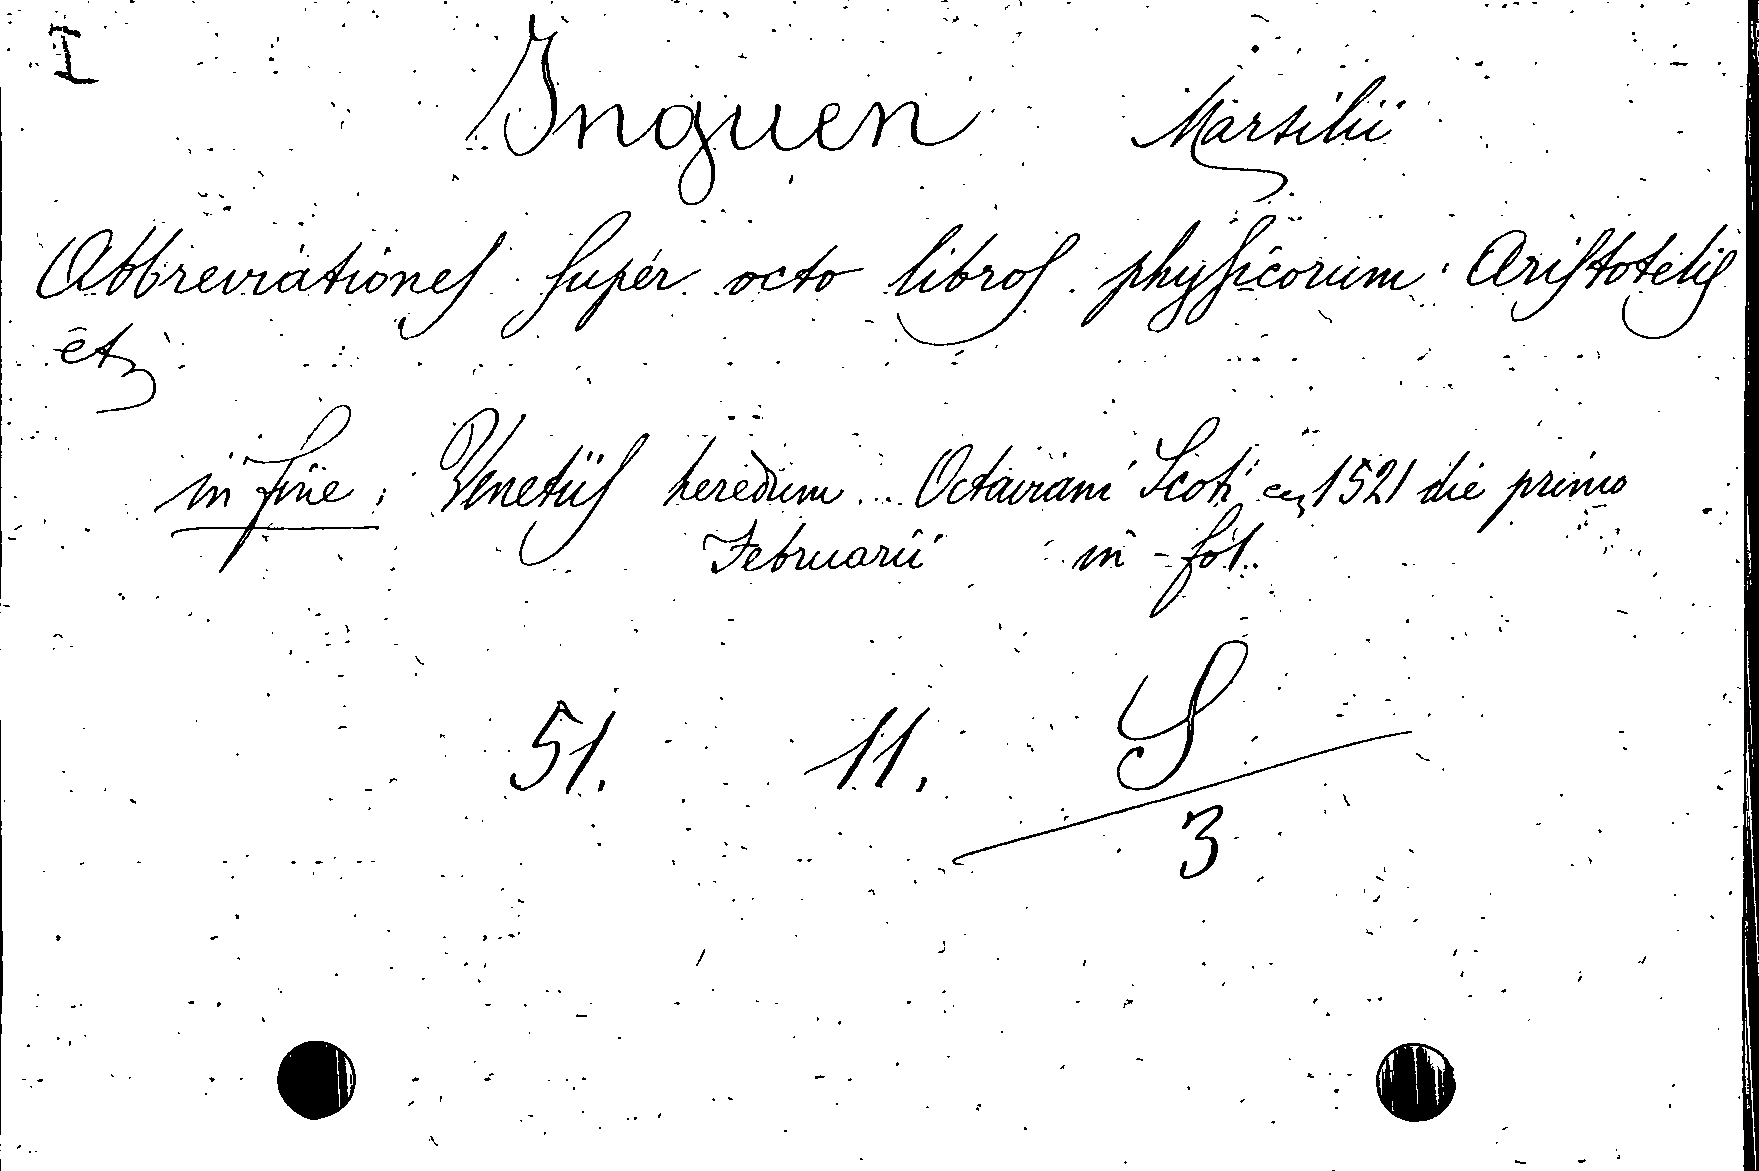 I
Inguen Marsilii
Abbreviationes super octo libros physicorum Aristotelis
etz
in fine: Venetiis heredum Octaviani Scoti 1521 die primo
Februarii in-fol.
51. 11. S
3